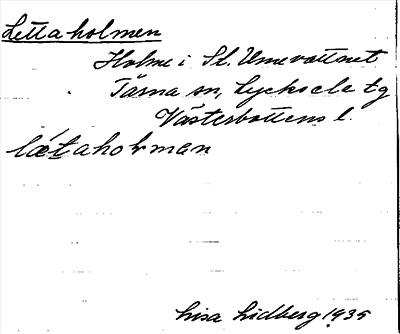 Lettaholmen
Holme i St. Umevattnet
Tärna sn, Lycksele tg
Västerbottens l.
lætahoɫman
Lisa Lidberg 1935